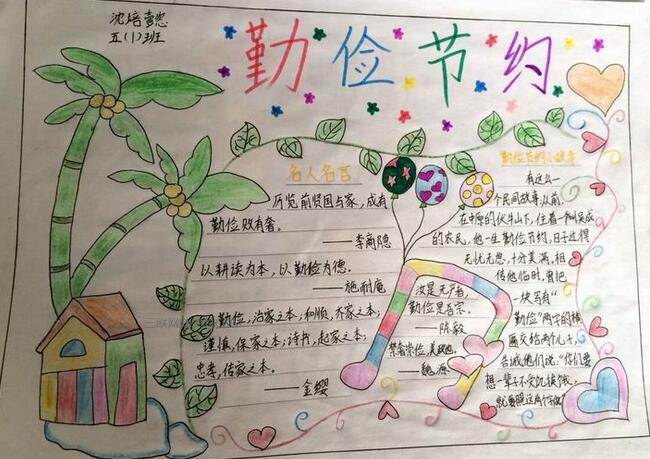 沈培壹恣
五(1)班
勤俭节约
名人名言
历览前贤国与家,成有
勤俭败有奢。
——李商隐
以耕读为本,以勤俭为德。
——施耐庵
勤俭,治家之本;和顺,齐家之本;
谨慎,保家之本;诗书,起家之本;
忠孝,传家之本。
——金缨
汝是无尸者,
勤俭是吾宗。
——陈毅
——魏源
勤俭节约小故事
有这么一
个民间故事,从前,
在中原的伏牛山下,住着一个叫吴成
的农民,他一生勤俭节约,日子过得
无忧无虑,十分美满。相
传他临时,曾把
一块写有“
勤俭”两字的横
匾交给两个儿子,
告诫他们说:“你们要
想一辈子不受饥挨饿,
就要照这两个字做”